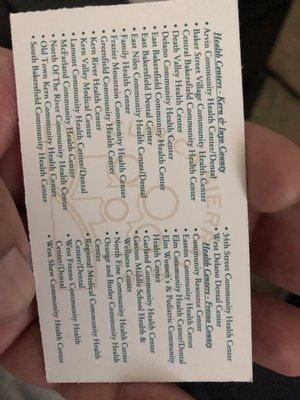 Health Centers - Kern & Inyo County
• Arvin Community Health Center/Dental
• Baker Street Village Community Health Center
• Central Bakersfield Community Health Center
• Death Valley Health Center
• Delano Community Health Center
• East Bakersfield Community Health Center
• East Bakersfield Dental Center
• East Niles Community Health Center/Dental
• Family Health Center
• Frazier Mountain Community Health Center
• Greenfield Community Health Center
• Kern River Health Center
• Kern Valley Medical Center
• Lamont Community Health Center/Dental
• McFarland Community Health Center
• North Of The River Community Health Center
• Old Town Kern Community Health Center
• South Bakersfield Community Health Center
• 34th Street Community Health Center
West Delano Dental Center
Health Centers - Fresno County
• Community Resource Center
• Easton Community Health Center
• Elm Community Health Center/Dental
Elm Women's & Pediatric Community
Health Center
• Garland Community Health Center
• Gaston Middle School Health &
Wellness Center
• North Fine Community Health Center
• Orange and Butler Community Health
Center
• Regional Medical Community Health
Center/Dental
• West Fresno Community Health
Center/Dental
• West Shaw Community Health Center